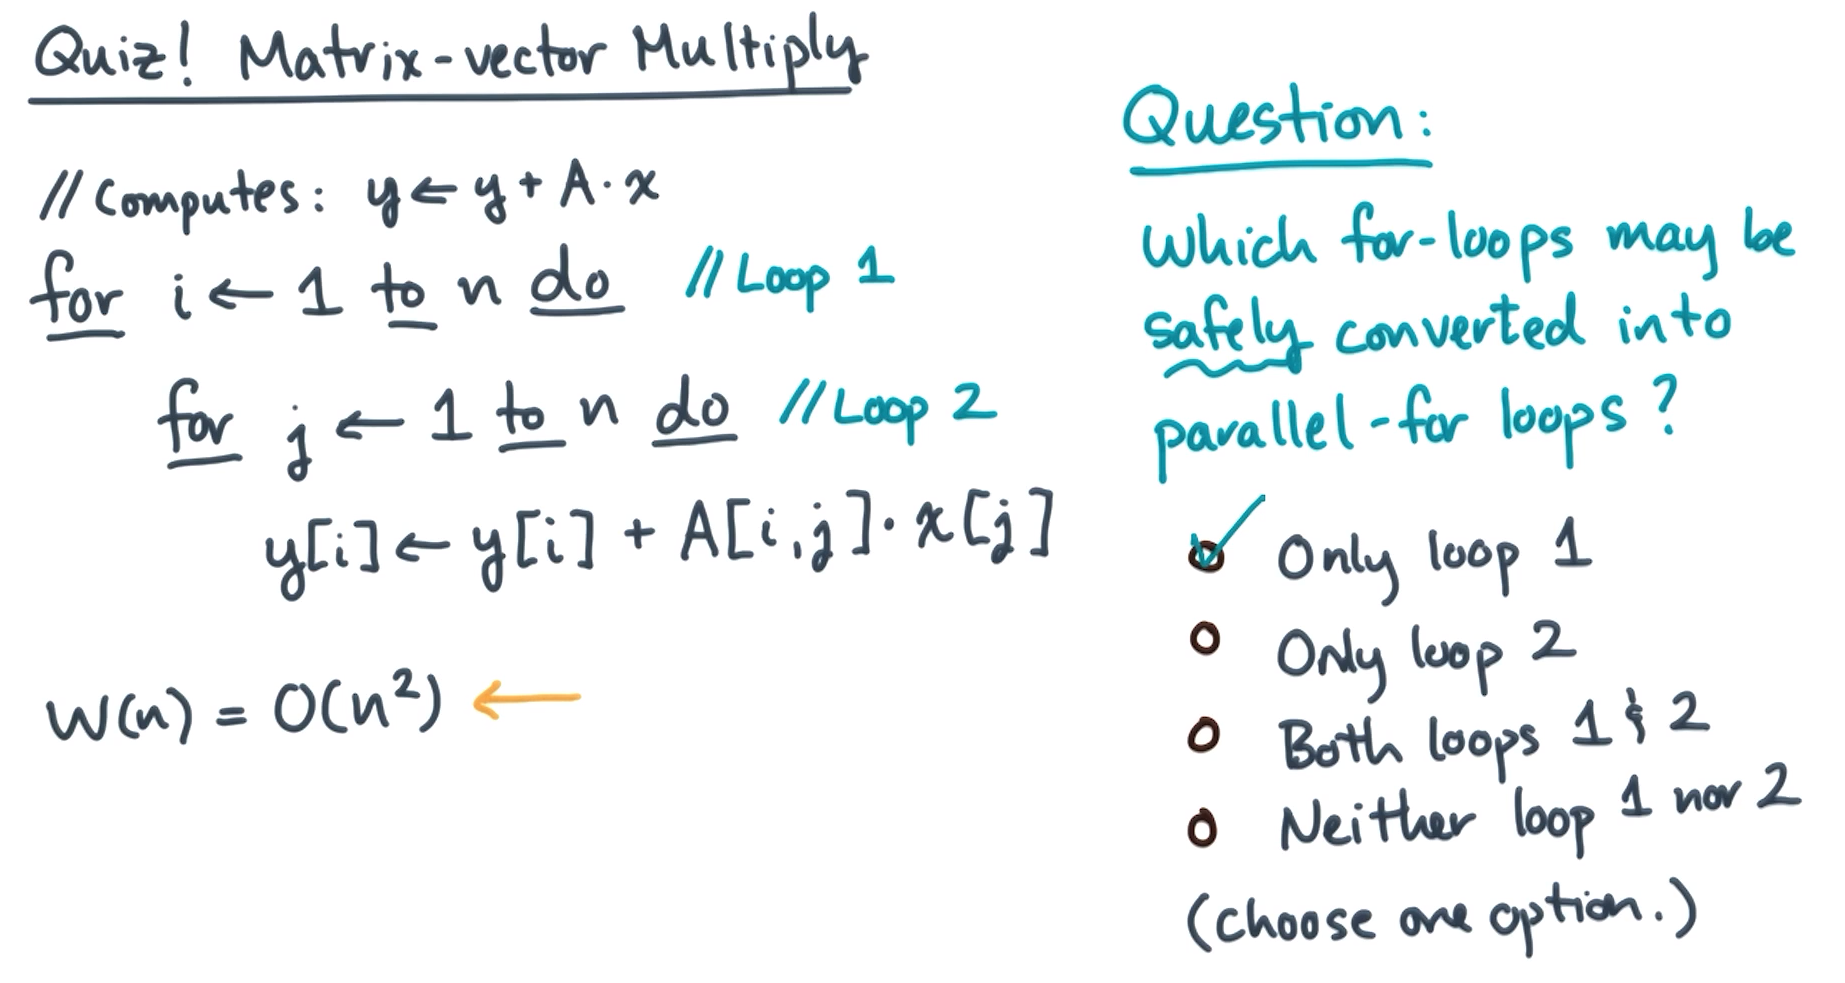 Quiz! Matrix-vector Multiply
// Computes: y ← y + A · x
for i ← 1 to n do // Loop 1
for j ← 1 to n do // Loop 2
y[i] ← y[i] + A[i,j] · x[j]
W(n) = O(n²) ←
Question:
Which for-loops may be
safely converted into
parallel-for loops?
Only loop 1
Only loop 2
Both loops 1 & 2
Neither loop 1 nor 2
(Choose one option.)